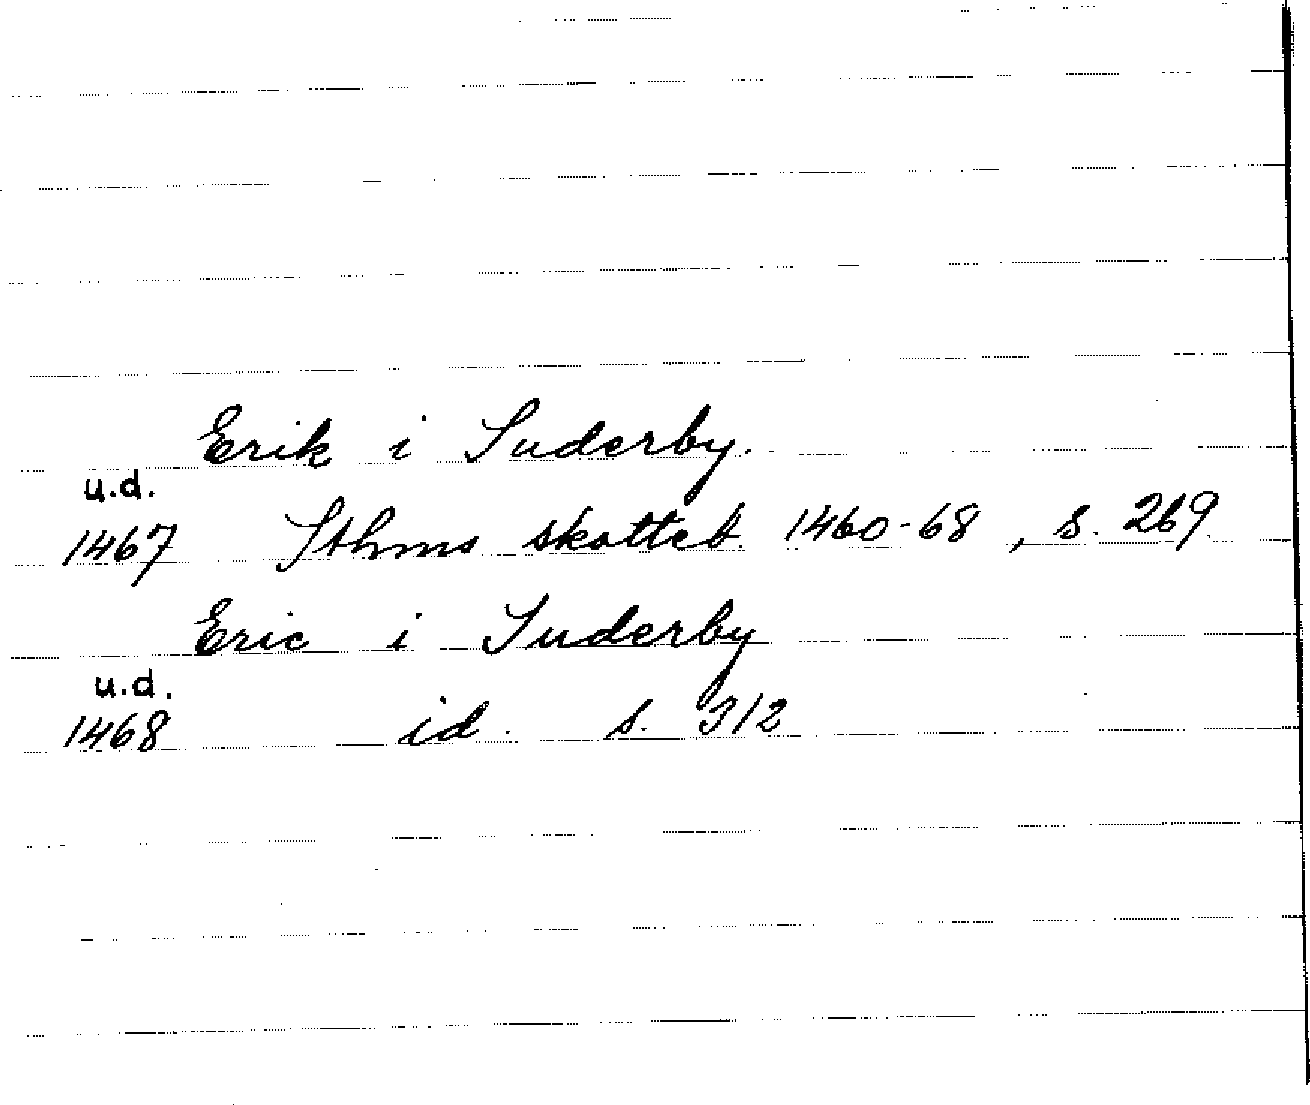 Erik i Suderby.
u.d.
1467 Sthms skatteb. 1460-68, s. 269
Eric i Suderby
u.d.
1468 id. s. 312